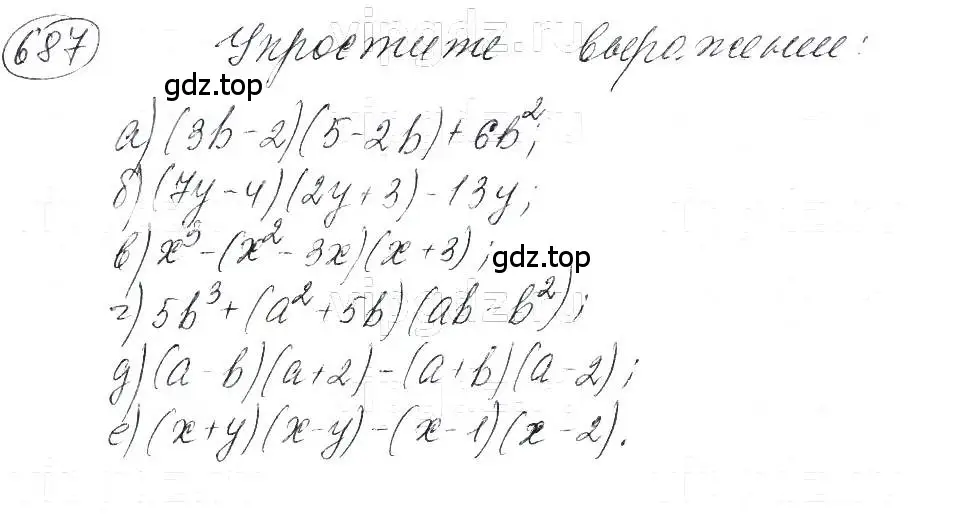 687 Упростите выражение:
gdz.top
а) (3b-2)(5-2b)+6b²;
б) (7y-4)(2y+3)-13y;
в) x³-(x²-3x)(x+3);
gdz.top
г) 5b³+(a²+5b)(ab-b²);
д) (a-b)(a+2)-(a+b)(a-2);
е) (x+y)(x-y)-(x-1)(x-2).